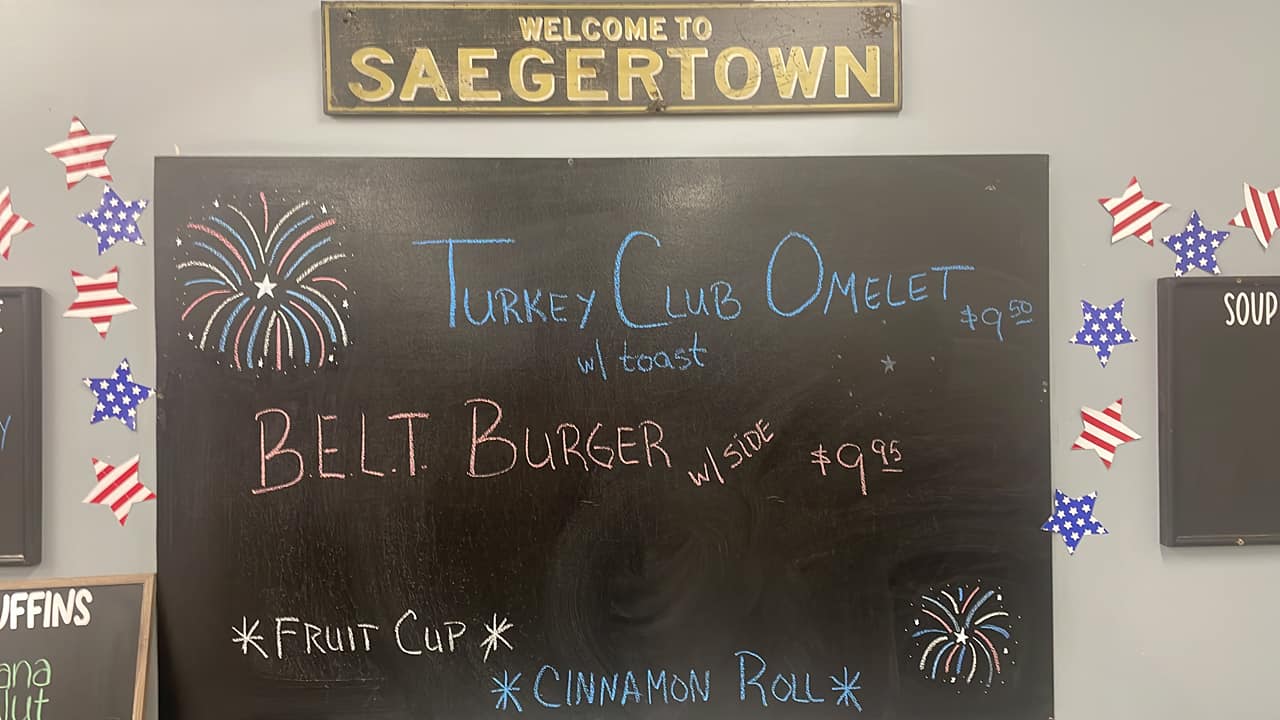 WELCOME TO
SAEGERTOWN
TURKEY CLUB OMELET $9.50
w/ toast
B.E.L.T. BURGER w/ SIDE $9.95
*FRUIT CUP*
*CINNAMON ROLL*
SOUP
UFFINS
ana
lut
Y